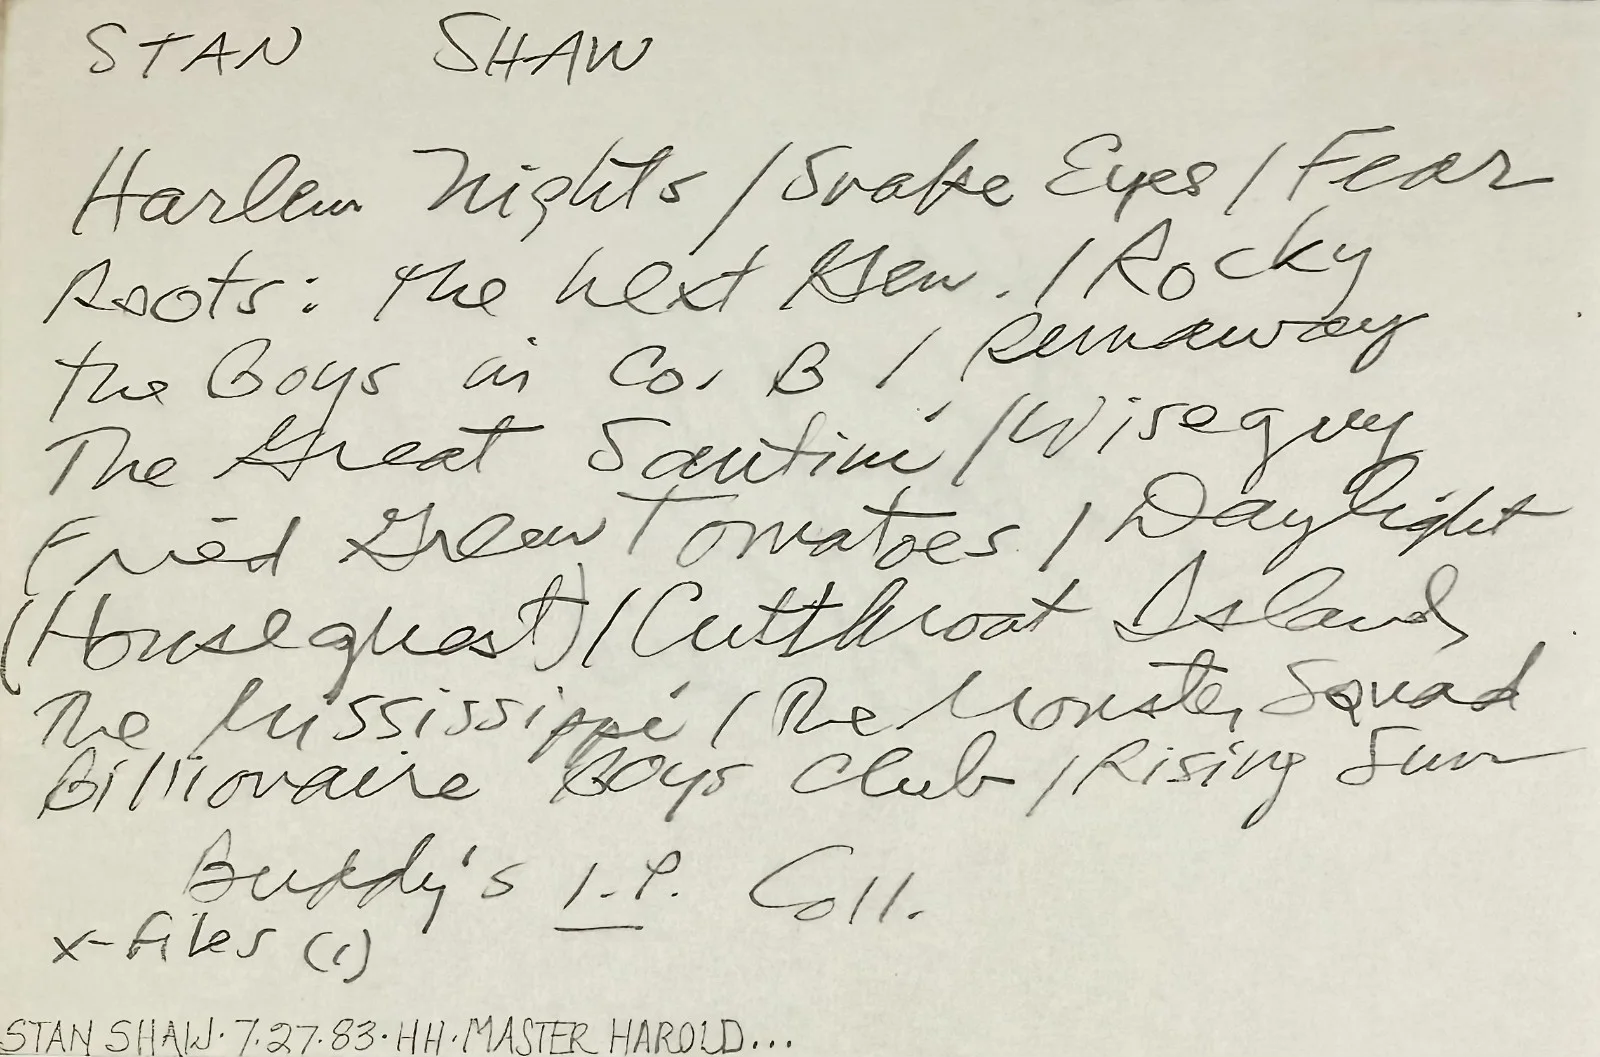 STAN SHAW
Harlem Nights / Snake Eyes / Fear
Roots: the Next Gen. / Rocky
the Boys in Co. B / Runaway
The Great Santini / Wiseguy
Fried Green Tomatoes / Daylight
(Houseguest) / Cutthroat Island
The Mississippi / The Monster Squad
Billionaire Boys Club / Rising Sun
Buddy's I.P. Coll.
X-Files (1)
STAN SHAW·7·27·83·HH·MASTER HAROLD...